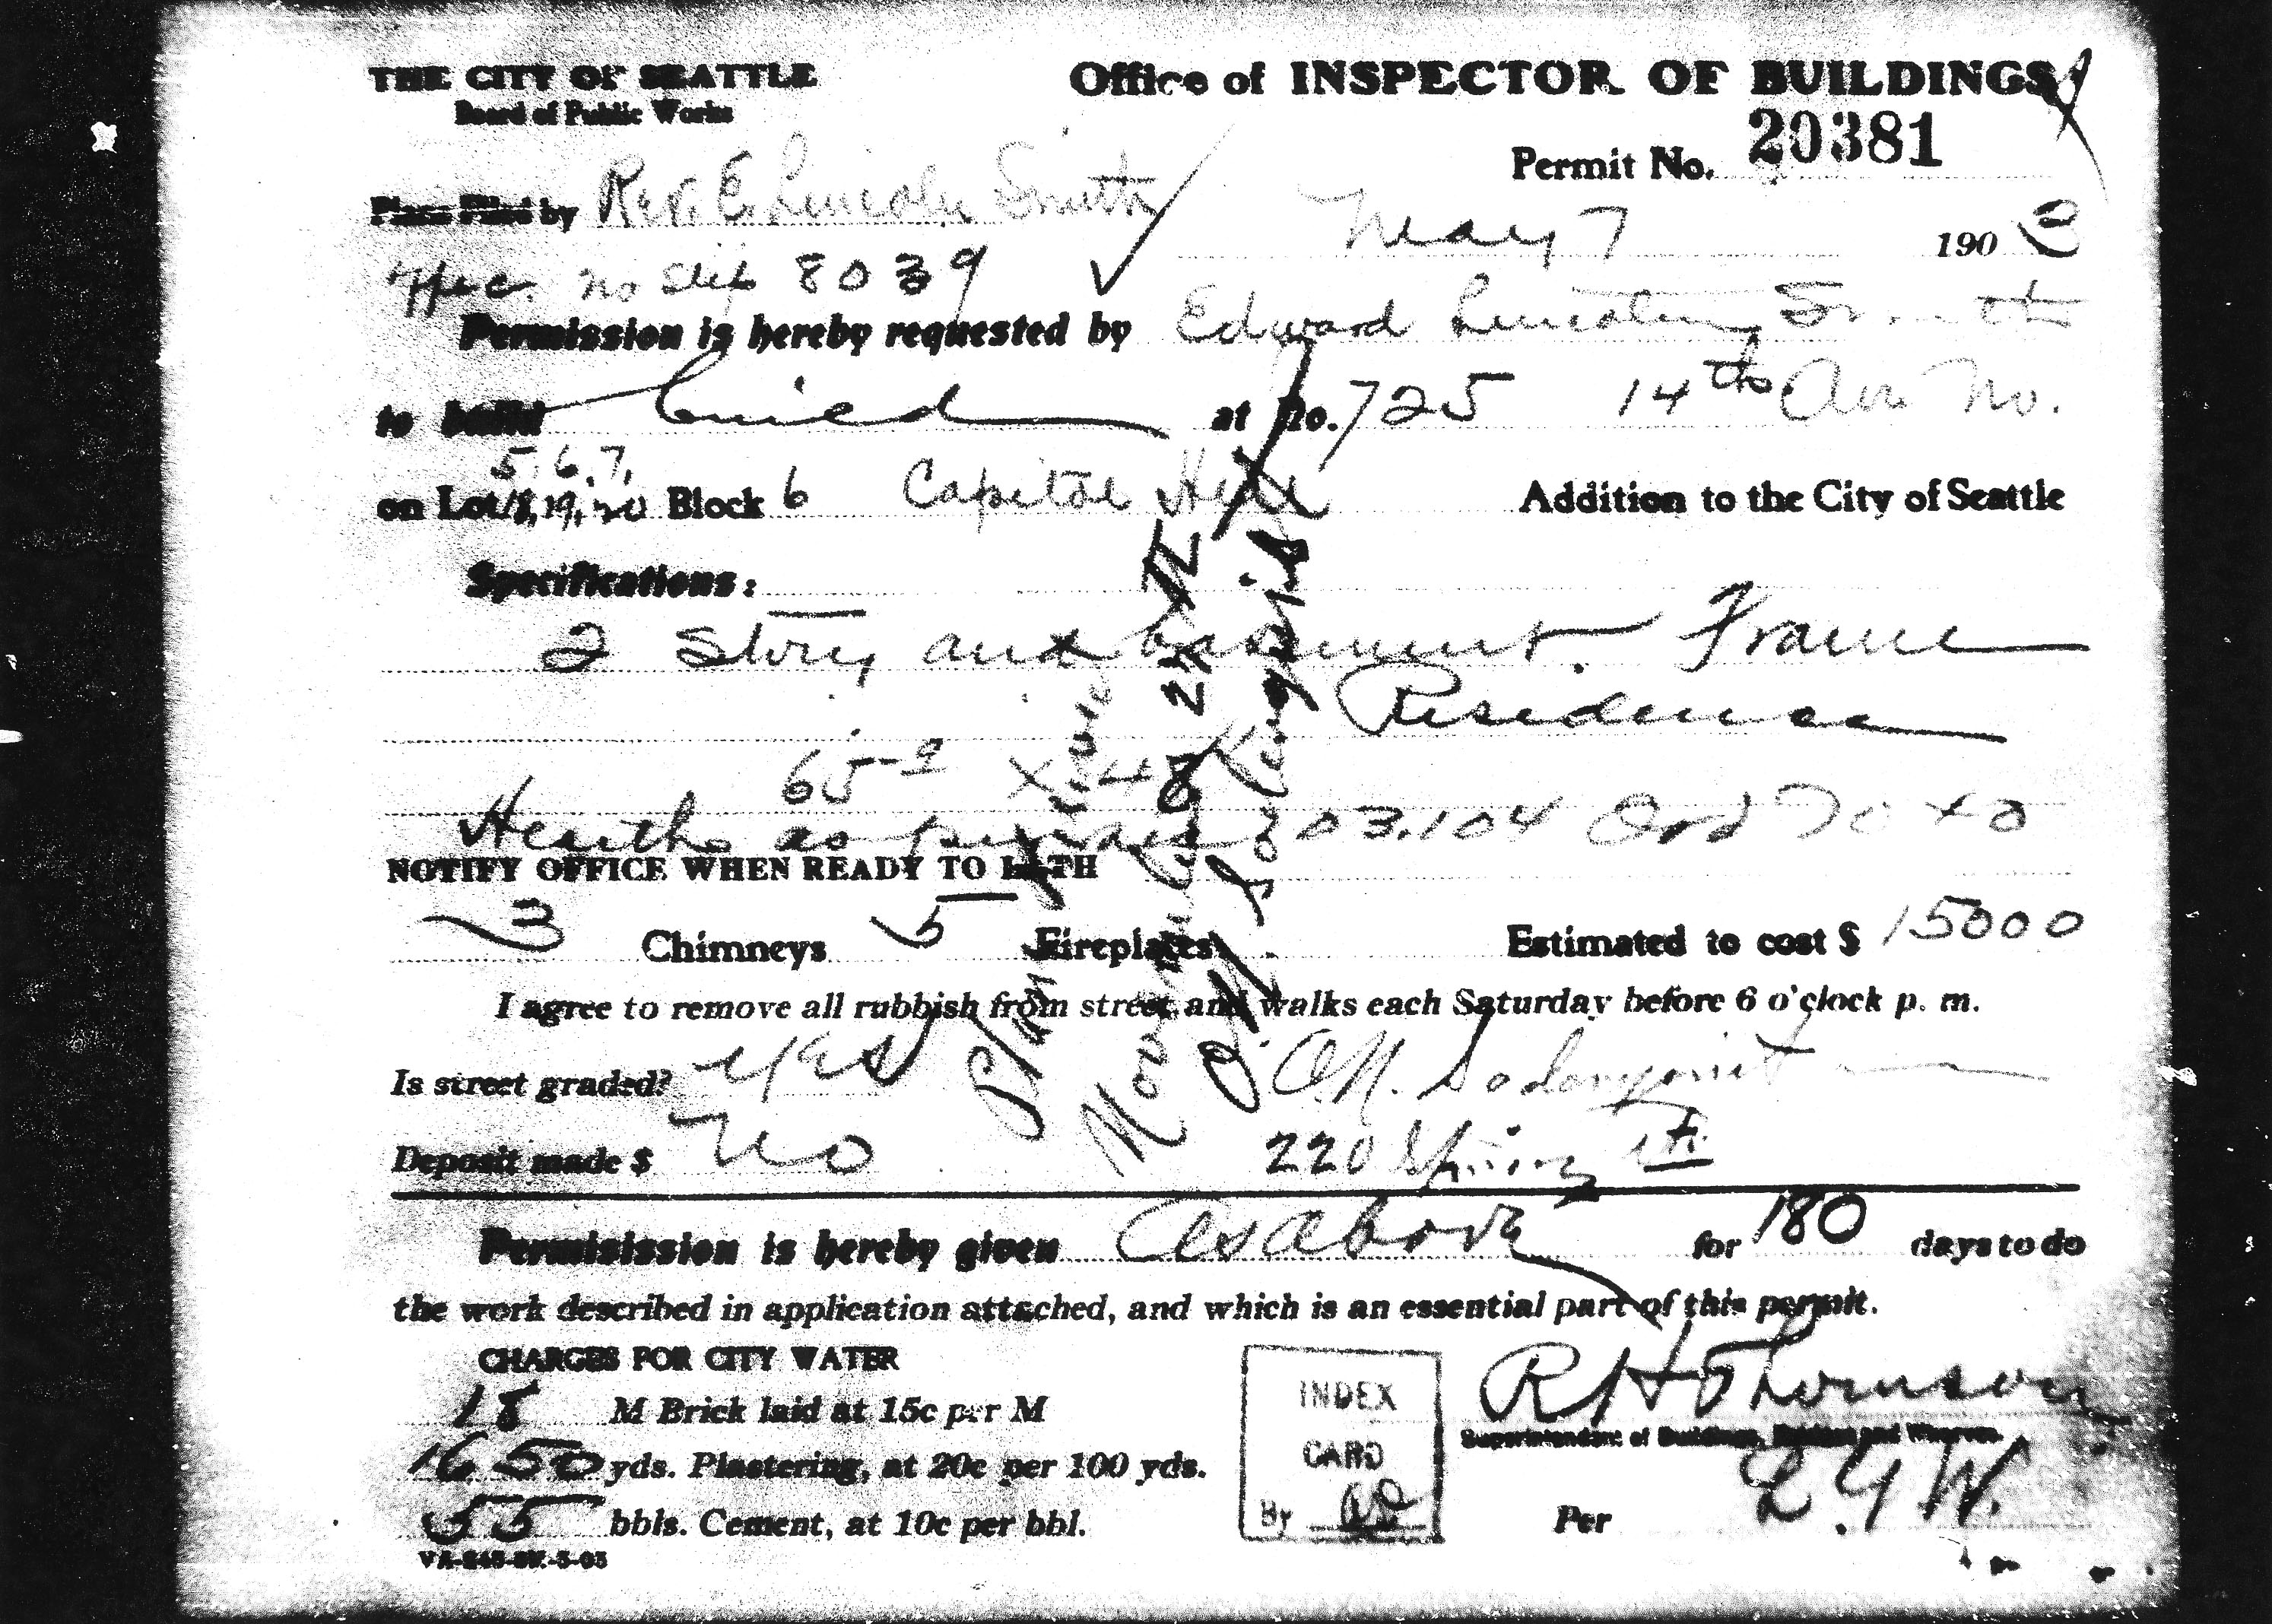 THE CITY OF SEATTLE
Board of Public Works
Office of INSPECTOR OF BUILDINGS
Permit No. 20381
Plans Filed by Rev. E. Lincoln Smith
May 7 1903
No Slip 8039
Permission is hereby requested by Edward Lincoln Smith
to build build at No. 725 14th Ave No.
5, 6, 7,
on Lot 18, 19, 20 Block 6 Capitol Hill Addition to the City of Seattle
Specifications:
2 Story and basement. Frame
Residence
65-9 x 48
Hearths as 03.104 Ord
NOTIFY OFFICE WHEN READY TO LATH
3 Chimneys 5 Fireplaces. Estimated to cost $ 15000
I agree to remove all rubbish from street and walks each Saturday before 6 o'clock p. m.
Is street graded? Yes
Deposit made $ No
220 Spring St.
Permisission is hereby given as above for 180 days to do
the work described in application attached, and which is an essential part of this permit.
CHARGES FOR CITY WATER
18 M Brick laid at 15c per M
1650 yds. Plastering, at 20c per 100 yds.
55 bbls. Cement, at 10c per bbl.
INDEX
CARD
By
R H Thomson
Superintendent of Buildings, Bridges and Wharves.
Per